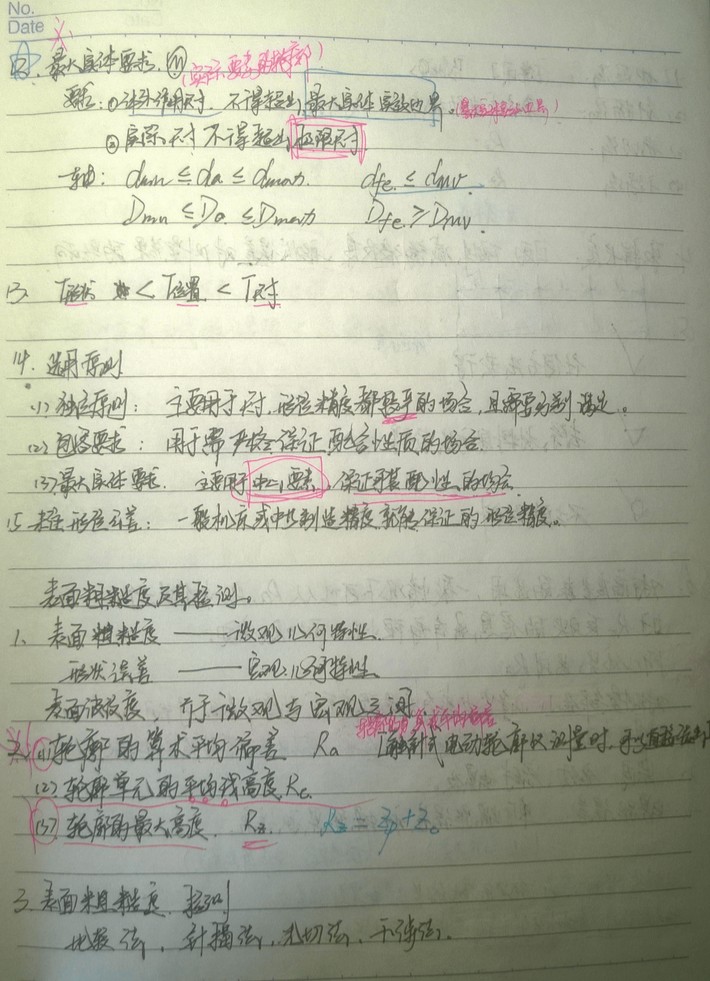 No.
Date
12. 最大实体要求. Ⓜ
要点: ①体外作用尺寸, 不得超出最大实体实效边界.
②实际尺寸不得超出极限尺寸
轴: dmin ≤ da ≤ dmax. dfe ≤ dMV.
Dmin ≤ Da ≤ Dmax Dfe ≥ DMV.
13. T形状 < T位置 < T尺寸
14. 选用原则
(1) 独立原则: 主要用于尺寸, 形位精度都较严的场合, 且需要分别满足。
(2) 包容要求: 用于需严格保证配合性质的场合.
(3) 最大实体要求. 主要用于中心要素, 保证可装配性的场合.
15. 未注形位公差: 一般机床或中等制造精度就能保证的形位精度。
表面粗糙度及其检测。
1. 表面粗糙度 —— 微观几何特性.
形状误差 —— 宏观几何特性.
表面波纹度, 介于微观与宏观之间
(1) 轮廓的算术平均偏差 Ra 触针式电动轮廓仪测量时,
(2) 轮廓单元的平均线高度 Rc.
(3) 轮廓的最大高度. Rz. Rz = Zp + Zv
3. 表面粗糙度
比较法, 针描法, 光切法, 干涉法.